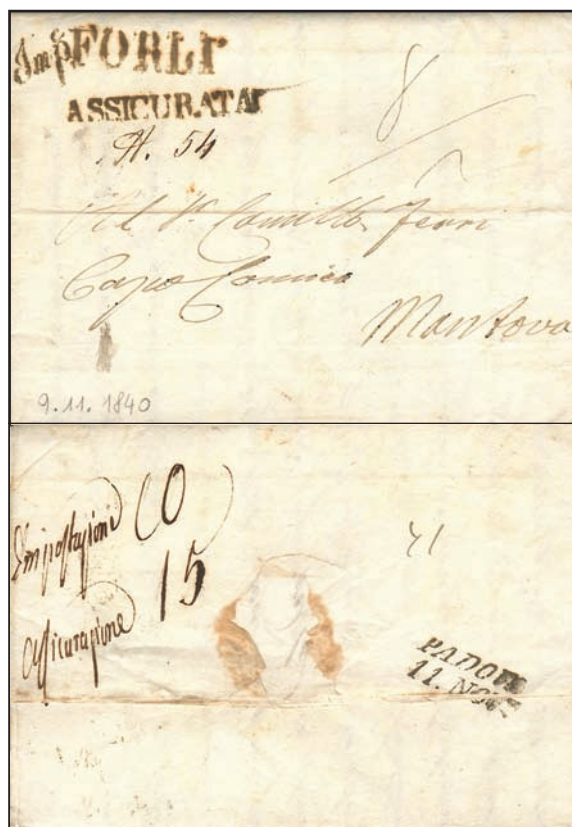 Imp. FORLI
ASSICURATA
N. 54
8
Camillo Ferri
Capo Comico
Mantova
9.11.1840
Impostazione 10
15
Assicurazione
41
PADOVA
11. NOV.